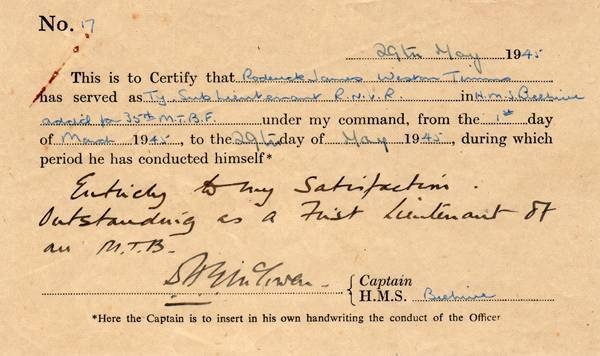 No. 17
29th May 1945
This is to Certify that Roderick James Weston Timms
has served as Ty. Sub Lieutenant R.N.V.R. in H.M.S. Beehive
add'l for 35th M.T.B.F. under my command, from the 1st day
of March 1945, to the 29th day of May 1945, during which
period he has conducted himself*
Entirely to my Satisfaction.
Outstanding as a First Lieutenant of
an M.T.B.
Captain
H.M.S. Beehive
*Here the Captain is to insert in his own handwriting the conduct of the Officer